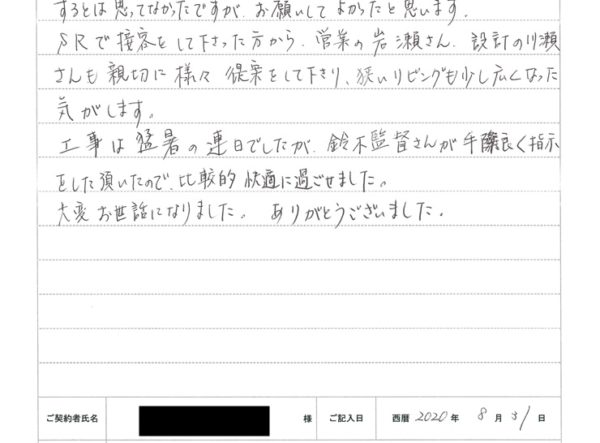 するとは思ってなかったですが、お願いしてよかったと思います。
SRで接客をして下さった方から、営業の岩瀬さん、設計の川瀬
さんも親切に様々提案をして下さり、狭いリビングも少し広くなった
気がします。
工事は猛暑の連日でしたが、鈴木監督さんが手際良く指示
をした頂いたので、比較的快適に過ごせました。
大変お世話になりました。ありがとうございました。
ご契約者氏名 様 ご記入日 西暦 2020 年 8 月 31 日